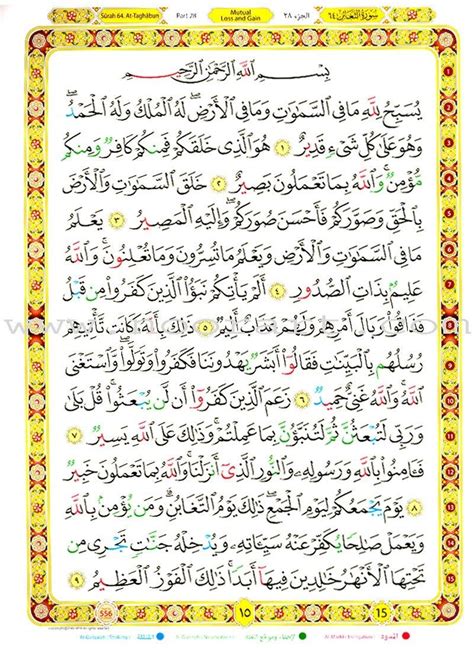 Sūrah 64. At-Taghābun Part 28 Mutual Loss and Gain الجزء ٢٨ سورة التغابن ٦٤
بِسْمِ اللَّهِ الرَّحْمَٰنِ الرَّحِيمِ
يُسَبِّحُ لِلَّهِ مَا فِي السَّمَاوَاتِ وَمَا فِي الْأَرْضِ ۖ لَهُ الْمُلْكُ وَلَهُ الْحَمْدُ ۖ
وَهُوَ عَلَىٰ كُلِّ شَيْءٍ قَدِيرٌ ١ هُوَ الَّذِي خَلَقَكُمْ فَمِنكُمْ كَافِرٌ وَمِنكُم
مُّؤْمِنٌ ۚ وَاللَّهُ بِمَا تَعْمَلُونَ بَصِيرٌ ٢ خَلَقَ السَّمَاوَاتِ وَالْأَرْضَ
بِالْحَقِّ وَصَوَّرَكُمْ فَأَحْسَنَ صُوَرَكُمْ ۖ وَإِلَيْهِ الْمَصِيرُ ٣ يَعْلَمُ
مَا فِي السَّمَاوَاتِ وَالْأَرْضِ وَيَعْلَمُ مَا تُسِرُّونَ وَمَا تُعْلِنُونَ ۚ وَاللَّهُ
عَلِيمٌ بِذَاتِ الصُّدُورِ ٤ أَلَمْ يَأْتِكُمْ نَبَأُ الَّذِينَ كَفَرُوا مِن قَبْلُ
فَذَاقُوا وَبَالَ أَمْرِهِمْ وَلَهُمْ عَذَابٌ أَلِيمٌ ٥ ذَٰلِكَ بِأَنَّهُ كَانَت تَّأْتِيهِمْ
رُسُلُهُم بِالْبَيِّنَاتِ فَقَالُوا أَبَشَرٌ يَهْدُونَنَا فَكَفَرُوا وَتَوَلَّوا ۚ وَّاسْتَغْنَى
اللَّهُ ۚ وَاللَّهُ غَنِيٌّ حَمِيدٌ ٦ زَعَمَ الَّذِينَ كَفَرُوا أَن لَّن يُبْعَثُوا ۚ قُلْ بَلَىٰ
وَرَبِّي لَتُبْعَثُنَّ ثُمَّ لَتُنَبَّؤُنَّ بِمَا عَمِلْتُمْ ۚ وَذَٰلِكَ عَلَى اللَّهِ يَسِيرٌ ٧
فَآمِنُوا بِاللَّهِ وَرَسُولِهِ وَالنُّورِ الَّذِي أَنزَلْنَا ۚ وَاللَّهُ بِمَا تَعْمَلُونَ خَبِيرٌ
٨ يَوْمَ يَجْمَعُكُمْ لِيَوْمِ الْجَمْعِ ۖ ذَٰلِكَ يَوْمُ التَّغَابُنِ ۗ وَمَن يُؤْمِن بِاللَّهِ
وَيَعْمَلْ صَالِحًا يُكَفِّرْ عَنْهُ سَيِّئَاتِهِ وَيُدْخِلْهُ جَنَّاتٍ تَجْرِي مِن
تَحْتِهَا الْأَنْهَارُ خَالِدِينَ فِيهَا أَبَدًا ۚ ذَٰلِكَ الْفَوْزُ الْعَظِيمُ ٩
556 ١٥ 15